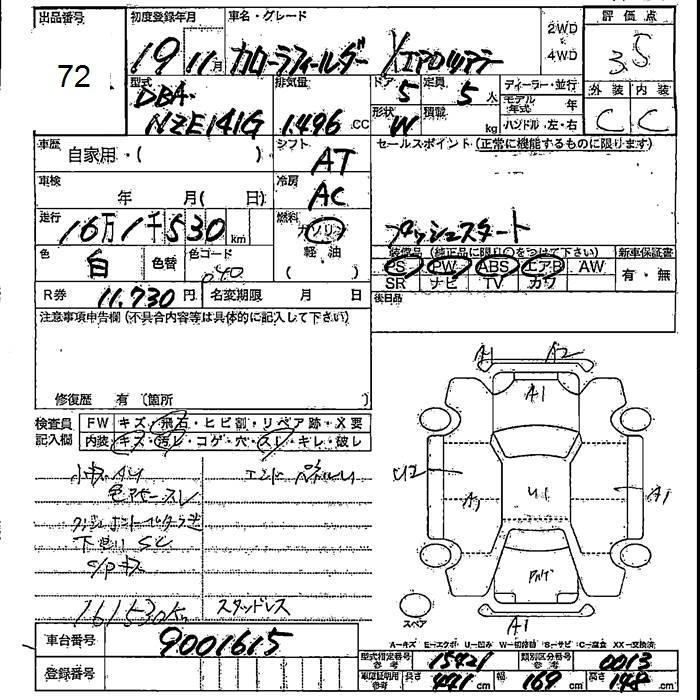 出品番号 72
初度登録年月 19 11月
車名・グレード カローラフィールダー X エアロツアラー
2WD
4WD
評価点 3.5
型式 DBA- NZE141G
排気量 1.496 CC
ドア 5 定員 5人
形状 W 積載 kg
ディーラー・並行
モデル年式 年
ハンドル・左・右
外装 内装
C C
車歴 自家用・( )
シフト AT
セールスポイント (正常に機能するものに限ります)
車検 年 月( 日)
冷房 AC
走行 16万1千530km
燃料 ガソリン
軽油
( )
プッシュスタート
色 白 色替 色コード 040
装備品 (純正品に限り○をつけて下さい) 新車保証書
PS PW ABS エアB AW 有・無
SR ナビ TV カワ
R券 11,730円 名変期限 月 日
後日品
注意事項申告欄(不具合内容等は具体的に記入して下さい)
修復歴 有 (箇所 )
検査員記入欄
FW キズ・飛石・ヒビ割・リペア跡・X要
内装 キズ・汚レ・コゲ・穴・スレ・キレ・破レ
色アセ スレ
下廻り SC
161530km
スタッドレス
A1 A2
A1
U2
U1
A1
A1
スペア
A1
A-キズ E-エクボ U-凹み W-補修跡 S-サビ C-腐食 XX-交換済
車台番号 9001615
登録番号
型式指定番号参考 15421 類別区分番号参考 0013
車庫証明用参考 長さ 441cm 幅 169cm 高さ 148cm